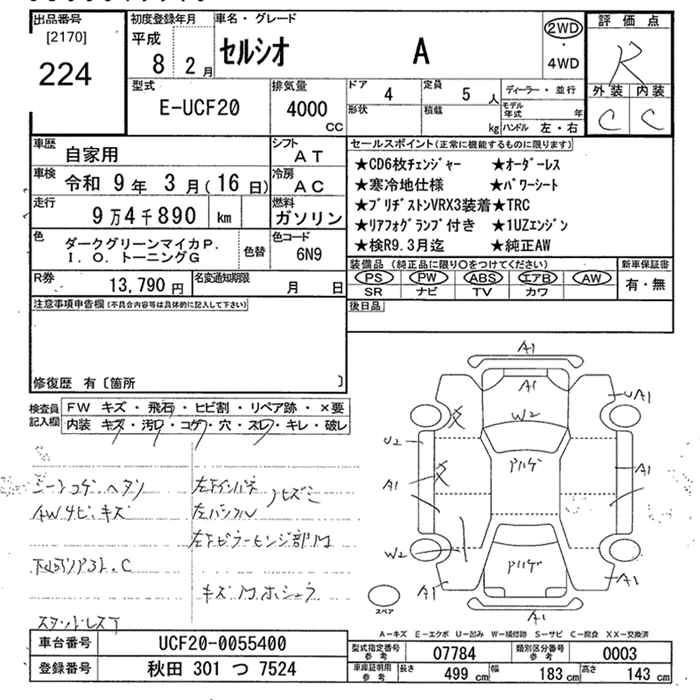 出品番号
[2170]
224
初度登録年月
平成
8 2月
車名・グレード
セルシオ A
2WD
・
4WD
評価点
R
外装 内装
C C
型式
E-UCF20
排気量
4000
CC
ドア 4
定員 5 人
形状
積載 kg
ディーラー・並行
モデル年式 年
ハンドル 左・右
車歴
自家用
シフト
AT
車検
令和 9年 3月(16日)
冷房
AC
走行
9万4千890 km
燃料
ガソリン
色
ダークグリーンマイカP.
I.O.トーニングG
色替
色コード
6N9
R券
13,790 円
名変通知期限
月 日
セールスポイント(正常に機能するものに限ります)
★CD6枚チェンジャー ★オーダーレス
★寒冷地仕様 ★パワーシート
★ブリヂストンVRX3装着 ★TRC
★リアフォグランプ付き ★1UZエンジン
★検R9.3月迄 ★純正AW
装備品(純正品に限り〇をつけてください)
PS PW ABS エアB AW
SR ナビ TV カワ
新車保証書
有・無
後日品
注意事項申告欄(不具合内容等は具体的に記入して下さい)
修復歴 有〔箇所 〕
検査員記入欄
FW キズ・飛石・ヒビ割・リペア跡・×要
内装 キズ・汚れ・コゲ・穴・スレ・キレ・破レ
シートコゲ、ヘタリ
AWサビ、キズ
A1
A1
UA1
W2
U2
A1
A1
W2
A1
A1
A1
スペア
A-キズ E-エクボ U-凹み W-補修跡 S-サビ C-腐食 XX-交換済
車台番号 UCF20-0055400
登録番号 秋田 301 つ 7524
型式指定番号 参考 07784
類別区分番号 参考 0003
車庫証明用 参考 長さ 499 cm 幅 183 cm 高さ 143 cm